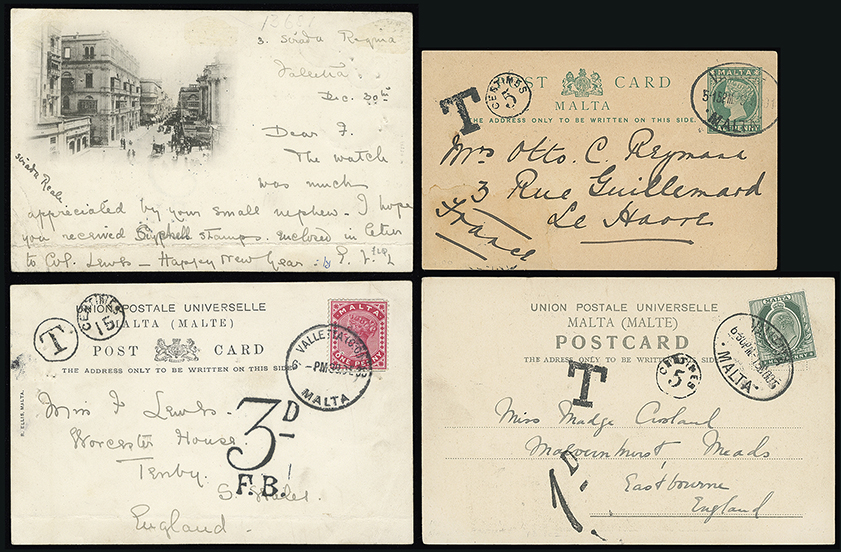 3. Strada Regina
Valletta
Dec. 30th
Dear F.
The watch
was much
appreciated by your small nephew. I hope
you received stamps. enclosed in letter
to Col. Lewis — Happy New Year.
Strada Reale
POST CARD
MALTA
THE ADDRESS ONLY TO BE WRITTEN ON THIS SIDE.
T
CENTIMES
5
MALTA
HALFPENNY
Mrs Otto. C. Reymann
3 Rue Guillemard
Le Havre
France
UNION POSTALE UNIVERSELLE
MALTA (MALTE)
POST CARD
THE ADDRESS ONLY TO BE WRITTEN ON THIS SIDE
T
CENTIMES
15
MALTA
ONE PENNY
VALLETTA
MALTA
Miss F Lewis.
Worcester House.
Tenby.
S. Wales.
England.
3D
F.B.
S. ELLIS, MALTA.
UNION POSTALE UNIVERSELLE
MALTA (MALTE)
POSTCARD
THE ADDRESS ONLY TO BE WRITTEN ON THIS SIDE
T
CENTIMES
5
MALTA
Miss Madge
Malvernhurst Meads
Eastbourne
England
1D